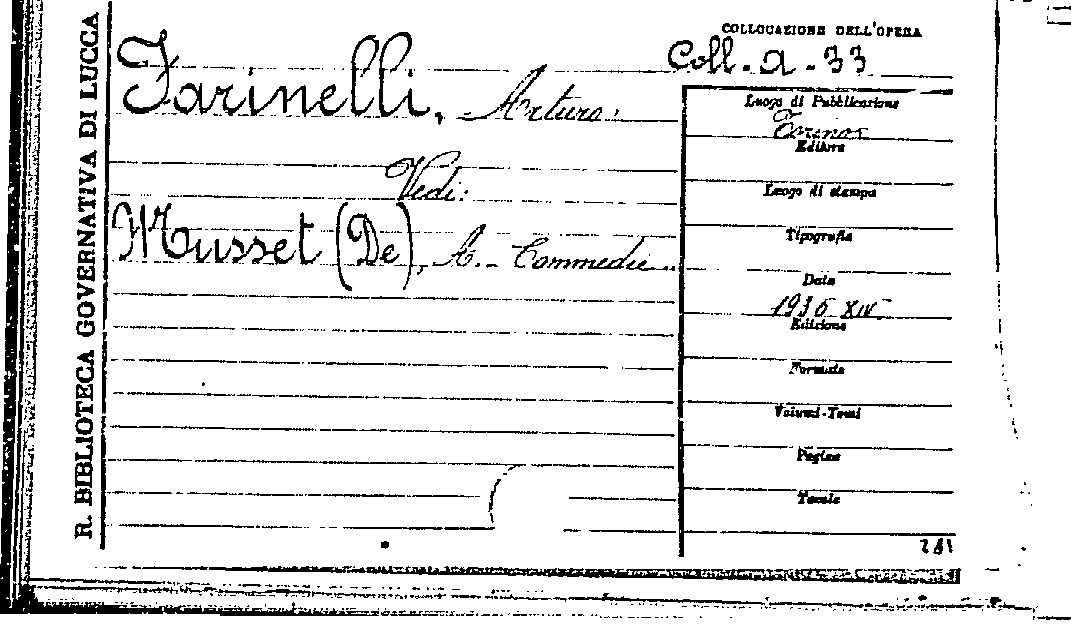 R. BIBLIOTECA GOVERNATIVA DI LUCCA
COLLOCAZIONE DELL'OPERA
Coll. a. 33
Farinelli, Arturo.
Vedi:
Musset (De), A. - Commedie.
Luogo di Pubblicazione
Torino
Editore
Luogo di stampa
Tipografia
Data
1936 XIV
Edizione
Formato
Volumi-Tomi
Pagine
Tavole